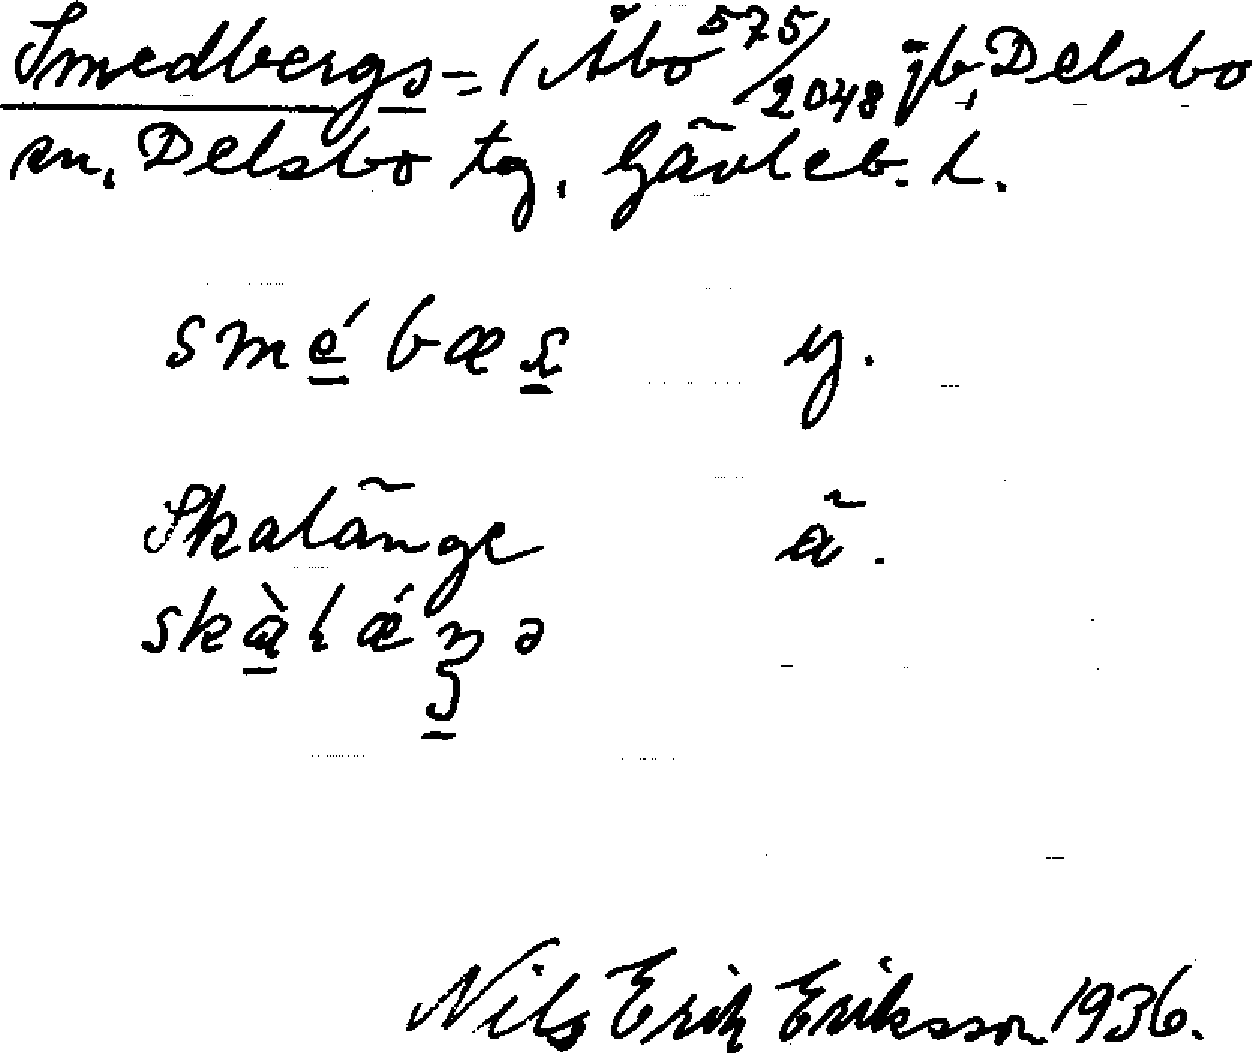 Smedbergs = ( Åbo 575/2048 jb, Delsbo
sn. Delsbo tg. Gävleb. l.
smé bæs y.
Skalänge ä.
skàlǽŋə
Nils Erik Eriksson 1936.